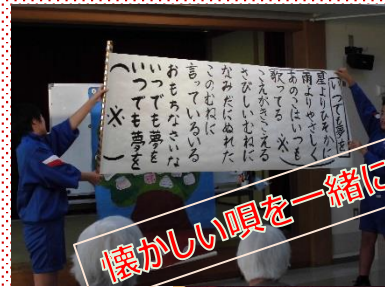 いつでも夢を
星よりひそかに
雨よりやさしく
あのこはいつも
歌ってる ※
こえがきこえる
さびしいむねに
なみだにぬれた
このむねに
言っているいる
おもちなさいな
いつでも夢を
いつでも夢を
(※)
懐かしい唄を一緒に